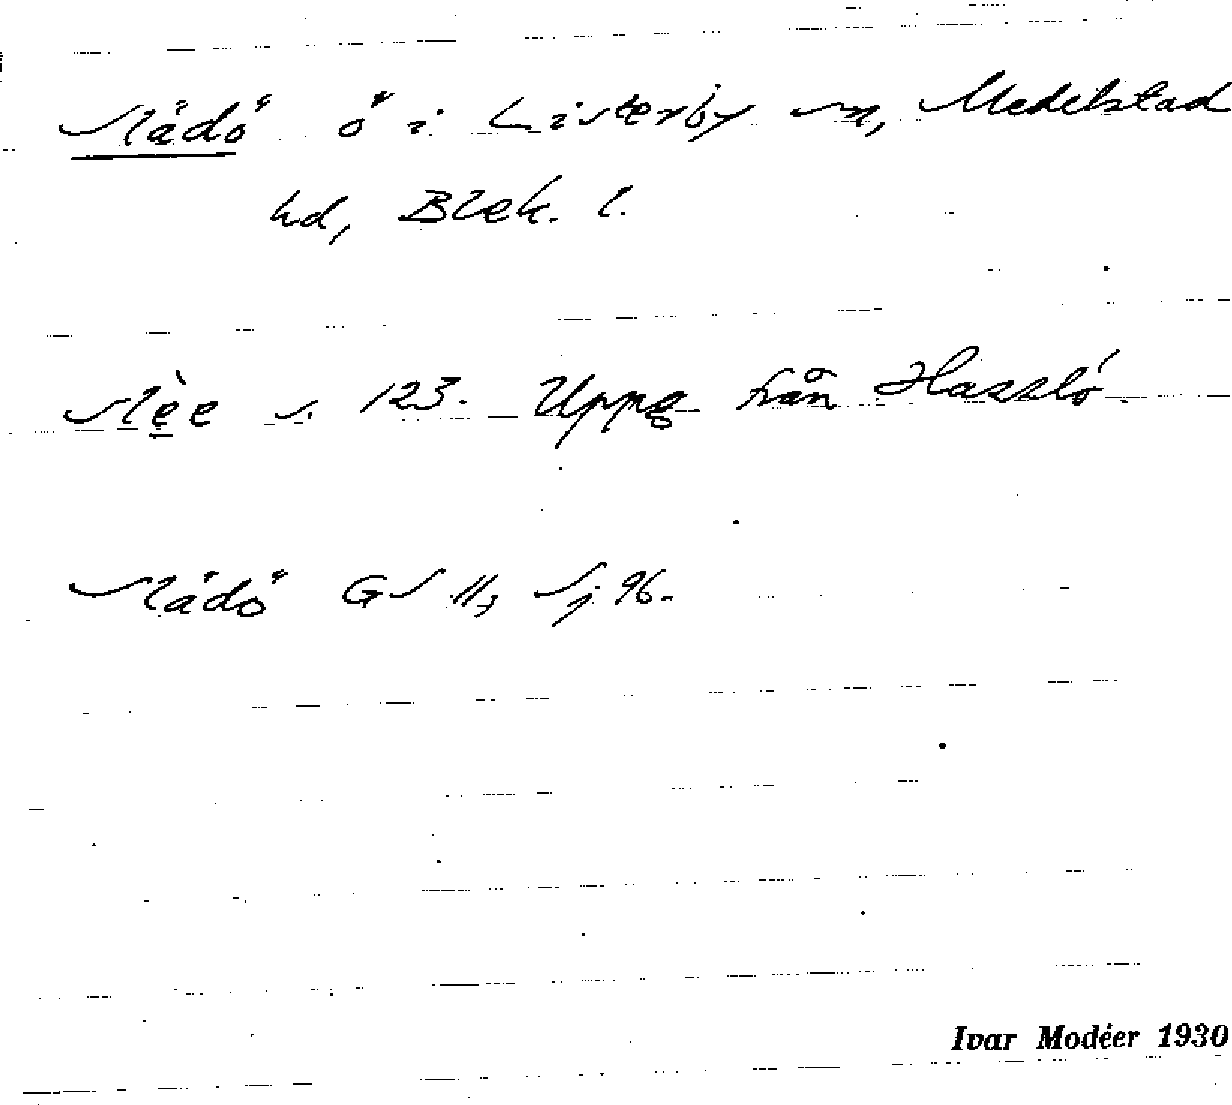 Slädö ö i Listerby sn, Medelstad
hd, Blek. l.
s. 123. Uppg från Hasslö.
Slädö GS 11, Sj 96.
Ivar Modéer 1930